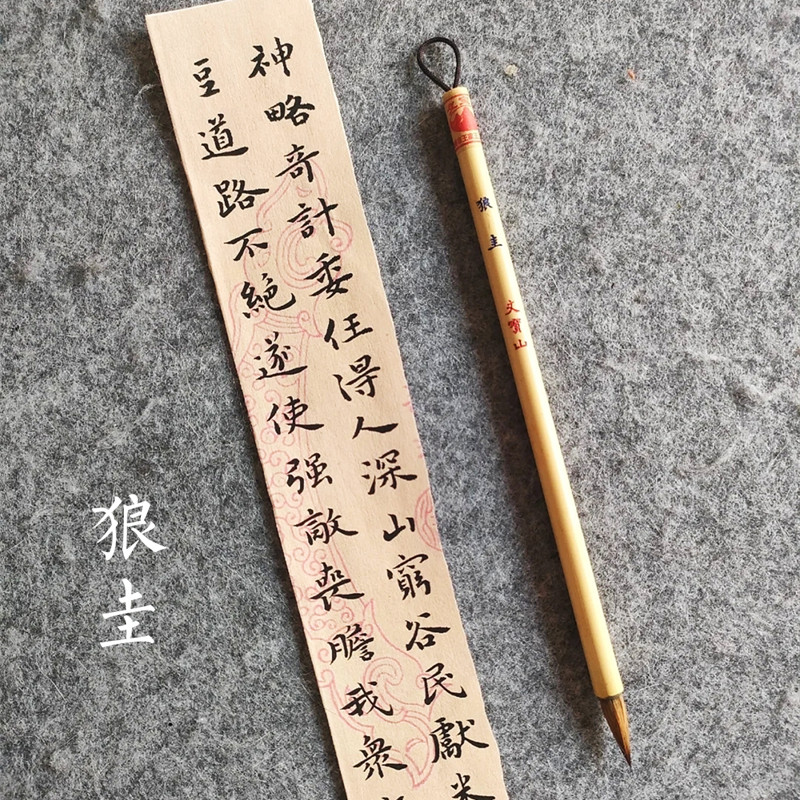 神略奇計委任得人深山窮谷民獻米
豆道路不絕遂使强敵喪膽我衆
狼圭
文寶山
狼圭